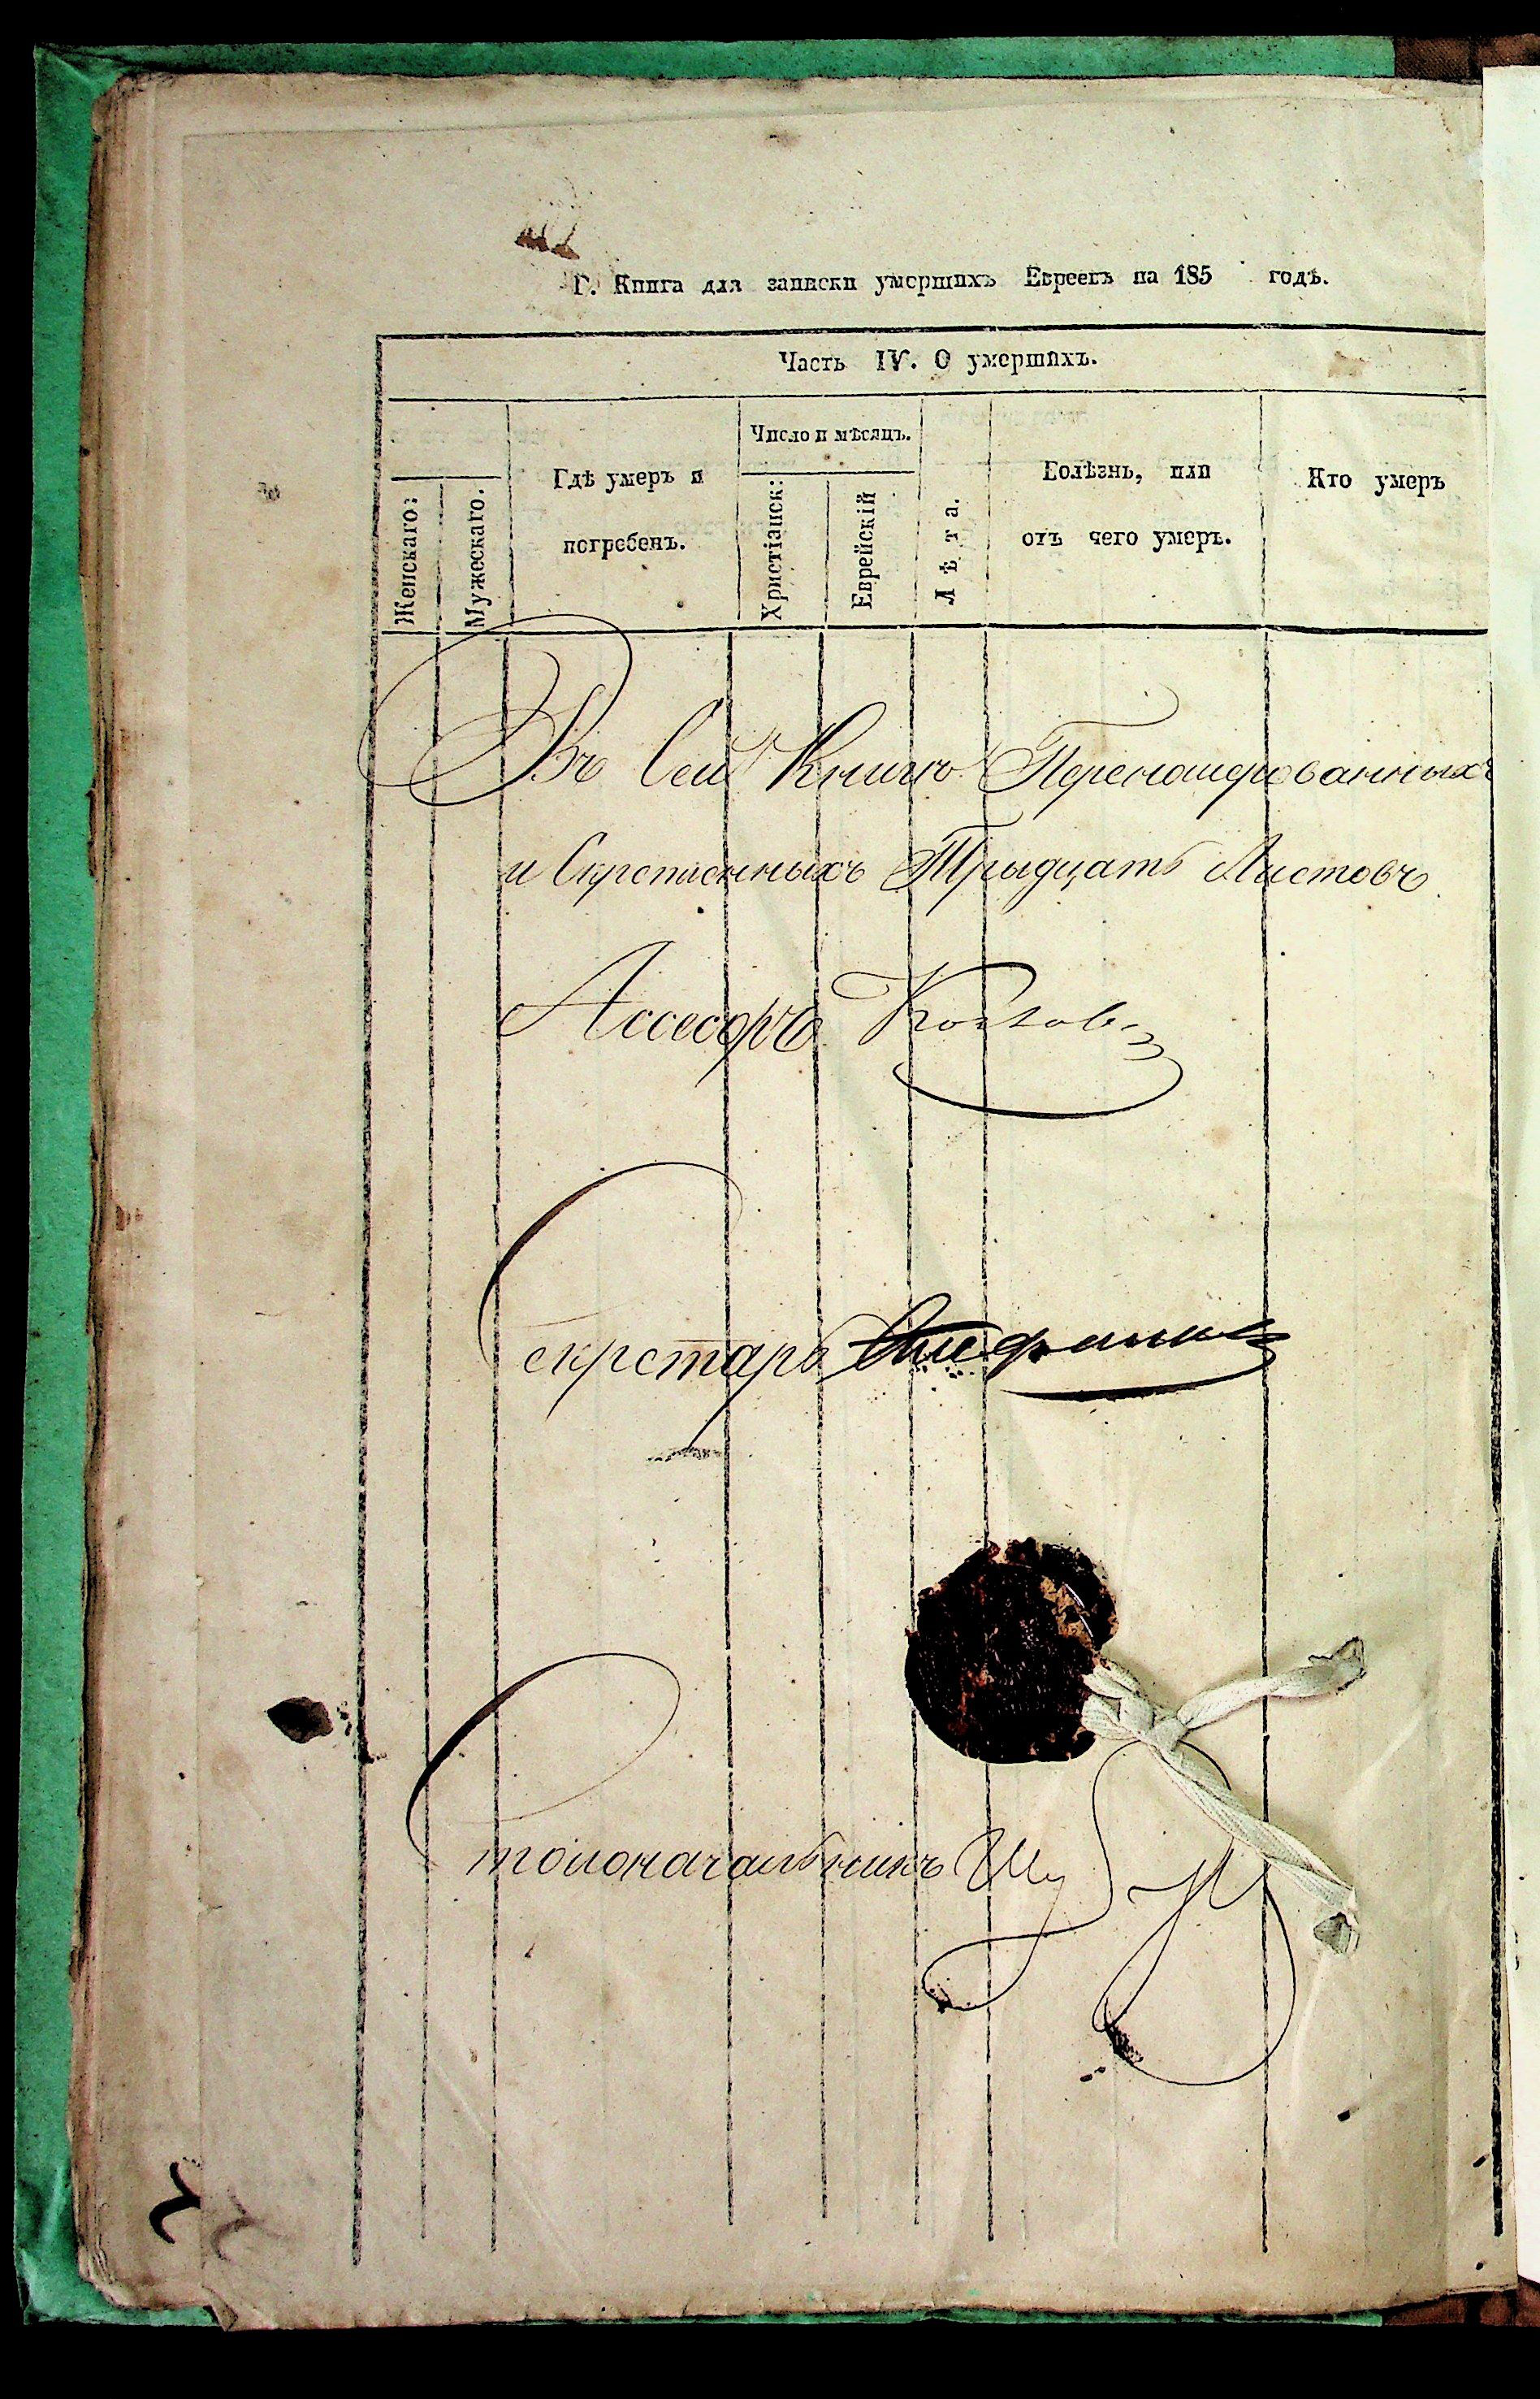 Г. Книга для записки умершихъ Евреевъ на 185 годъ.
Часть IV. О умершихъ.
Женскаго:
Мужескаго.
Гдѣ умеръ и
погребенъ.
Число и мѣсяцъ.
Христіанск:
Еврейскій
Лѣта.
Болѣзнь, или
отъ чего умеръ.
Кто умеръ
Въ Сей Книгѣ Перенашерованныхъ
и Скрепленныхъ Трыдцать Листовъ
Ассесоръ
Секретарь
Столоначальникъ